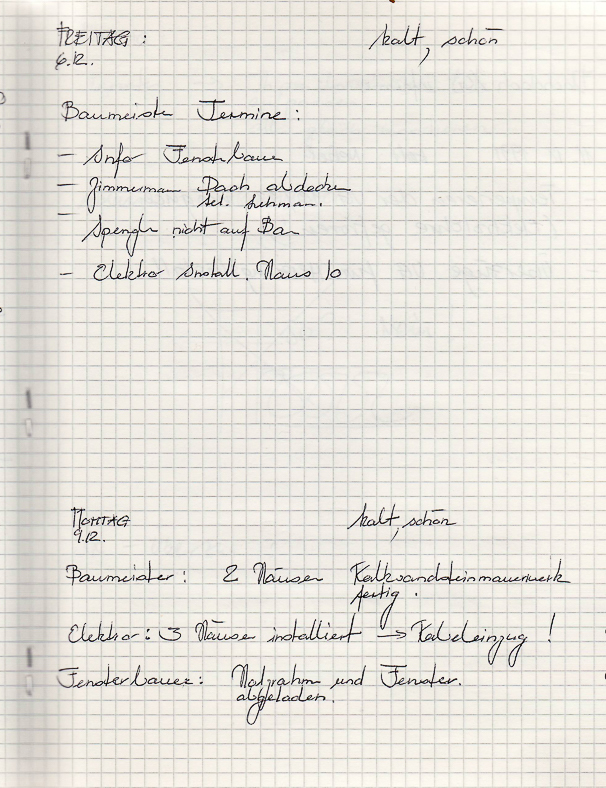 FREITAG : kalt, schön
6.12.
Baumeister Termine :
- Info Fensterbauer
- Zimmermann Dach abdecken
tel.
Spengler nicht auf Bau
- Elektro Install. Haus 10
MONTAG kalt, schön
9.12.
Baumeister : 2 Häuser Kalksandsteinmauerwerk
fertig .
Elektro : 3 Häuser installiert → Kabeleinzug !
Fensterbauer : Holzrahm und Fenster.
abgeladen.